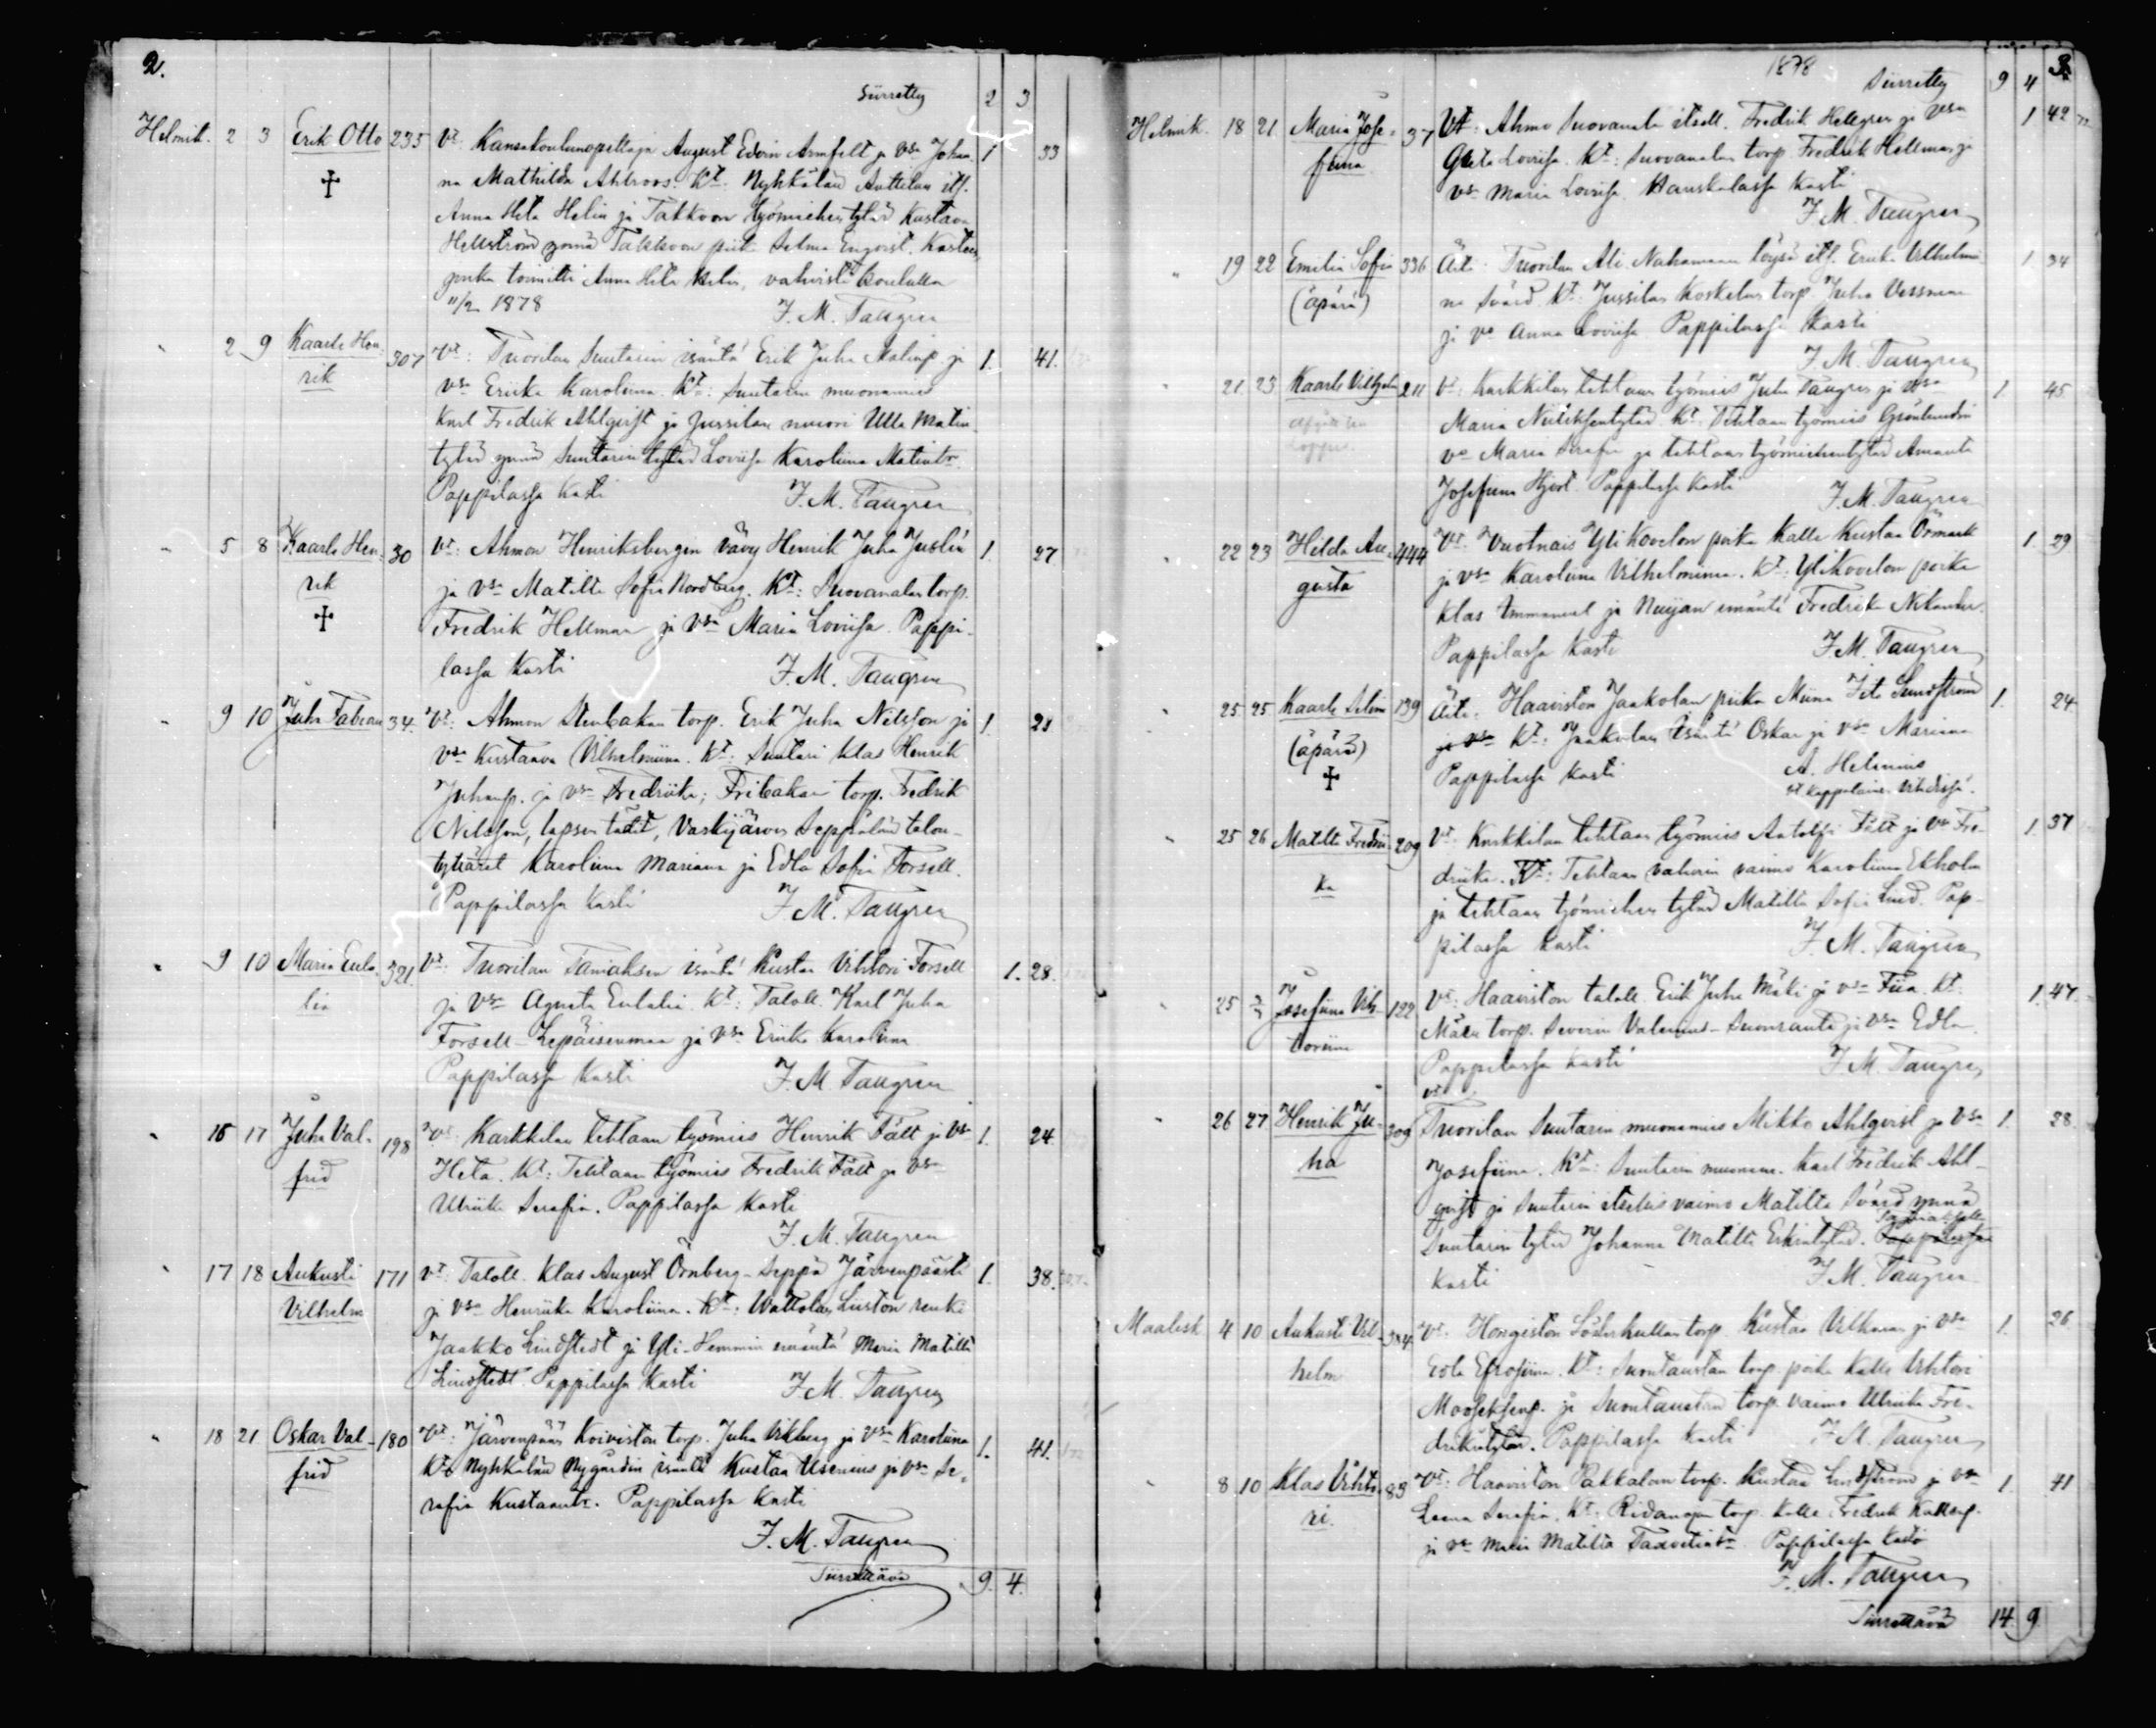 2.
Siirretty 2 3
Helmik. 2 3 Erik Otto 235 Vt. Kansakoulunopettaja August Edvin Armfelt ja Vsa Johan- 1 33
na Mathilda Ahlroos. Kt: Nyhkälän Anttilan its.
Anna Heta Helin ja Takkoon työmiehen tytär Kustava
Hellström ynnä Takkoon piit. Selma Engvist. Kasteen
toimitti Anna Heta Helin, vahvisti
11/2 1878 F. M. Taugren
" 2 9 Kaarle Hen- 307 Vt: Tuorilan Suutarin isäntä Erik Juha ja 1. 41.
rik vsa Eriika Karoliina. Kt: Suutarin muonamies
Karl Fredrik Ahlqvist ja Jussilan nuori Ulla Matin
tytär ynnä Suutarin tytär Loviisa Karoliina Matintr.
Pappilassa kasti F. M. Taugren
" 5 8 Kaarle Hen- 30 Vt: Ahmon Henriksbergin vävy Henrik Juha Juslin 1. 27
rik ja Vsa Matilta Sofia Nordberg. Kt: Suovanalan torp.
Fredrik Hellman ja Vsa Maria Loviisa. Pappi-
lassa kasti F. M. Taugren
" 9 10 Juha Fabian 34. Vt: Ahmon Stenbakan torp. Erik Juha Nelsson ja 1. 21
vsa Kustaava Vilhelmiina. Kt: Suutari Klas Henrik
Juhanp. ja vsa Fredriika; Fribakan torp. Fredrik
Nilsson, lapsen tädit, Vaskijärven Seppälän talon-
tyttäret Karoliina Mariana ja Edla Sofia Forsell.
Pappilassa kasti F. M. Taugren
" 9 10 Maria Eula- 321. Vt: Tuorilan isäntä Kustaa Vihtori Forsell 1. 28.
lia ja Vsa Agneta Eulalia. Kt: Taloll. Karl Juha
Forsell-Lepäisenmaa ja Vsa Eriika Karoliina
Pappilassa kasti F. M. Taugren
" 16 17 Juha Val- 198 Vt: Karkkilan tehtaan työmies Henrik Fält ja Vsa 1. 24.
frid Heta. Kt: Tehtaan työmies Fredrik Fält ja Vsa
Ulriika Serafia. Pappilassa kasti
F. M. Taugren
" 17 18 Aukusti 171 Vt: Taloll. Klas August Örnberg-Seppä Järvenpäästä 1. 38.
Vilhelm ja Vsa Henriika Karoliina. Kt: Wattolan Liuston renki
Jaakko Lindstedt ja Yli-Hemmin emäntä Maria Matilta
Lindstedt. Pappilassa kasti F. M. Taugren
" 18 21 Oskar Val- 180 Vt: Järvenpään Koiviston torp. Juha Vikberg ja Vsa Karoliina 1. 41.
frid Kt: Nyhkälän Nygårdin isäntä Kustaa Usenius ja Vsa Se-
rafia Kustaantr. Pappilassa kasti
F. M. Taugren
Siirrettävä 9. 4.
1878 3.
Siirretty 9 4
Helmik. 18 21 Maria Jose- 37 Vt: Ahmo Suovanala itsell. Fredrik Hellgren ja vsa 1 42
fiina Greta Loviisa. Kt: Suovanalan torp. Fredrik Hellman ja
vsa Maria Loviisa. kasti
F. M. Taugren
" 19 22 Emilia Sofia 336 Äiti: Tuorilan Ali Nahanmaan löysä its. Erika Vilhelmi- 1 34
(äpärä) na Svärd. Kt: Jussilan Koskelan torp. Juha Vessman
ja vs Anna Loviisa Pappilassa kasti
F. M. Taugren
" 21 23 Kaarle Vilhelm 211 Vt: Karkkilan tehtaan työmies Juha Taugren ja Vsa 1. 45
Maria Kt: Tehtaan työmies Grönlundin
vs Maria Serafia ja tehtaan työmiehentytär Amanta
Josefiina Hjort. Pappilassa kasti F. M. Taugren
" 22 23 Hilda Au- 444 Vt: Vuotnais Yli Kovelon poika Kalle Kustaa Örmark 1. 29
gusta ja vsa Karoliina Vilhelmiina. Kt: Ylikovelon poika
Klas Emmanuel ja Nuijan emäntä Fredrika Nikander.
Pappilassa kasti F. M. Taugren
" 25 25 Kaarle Selim 139 Äiti: Haaviston Jaakolan piika Miina Heta Sundström 1. 24.
(äpärä) ja vsa Kt: Jaakolan isäntä Oskar ja vsa Mariana
Pappilassa kasti A. Helenius
vt kappalainen Vihdissä.
" 25 26 Matilta Fredrii- 209 Vt: Karkkilan tehtaan työmies Antolfi Fält ja Vsa Fre- 1. 37
ka driika. Kt: Tehtaan valurin vaimo Karoliina Ekholm
ja tehtaan työmiehen tytär Matilta Sofia Lind. Pap-
pilassa kasti F. M. Taugren
" 25 Josefiina Vih- 122 Vt: Haaviston taloll. Erik Juha Mäki ja vsa Fiia. Kt: 1. 47.
toriina Mäen torp. Severin Valenius-Suonranta ja Vsa Edla
Pappilassa kasti F. M. Taugren
" 26 27 Henrik Ju- 309 Vt: Tuorilan Suutarin muonamies Mikko Ahlqvist ja Vsa 1. 28.
ha Josefiina. Kt: Suutarin muonam. Karl Fredrik Ahl-
qvist ja Suutarin itsellis vaimo Matilta Svärd ynnä
Suutarin tytär Johanna Matilta Erkintytär. Pappilassa
kasti F. M. Taugren
Maalisk 4 10 Aukusti Vil- 384 Vt: Hongiston Söderkullan torp. Kustaa Vilkman ja Vsa 1. 26
helm Edla Efrosiina. Kt: Suontaustan torp. poika Kalle Vihtori
ja Suontaustan torp. vaimo Ulriika Fre-
drikintytär. Pappilassa kasti F. M. Taugren
" 8 10 Klas Vihto- 83 Vt: Haaviston Pakkalan torp. Kustaa Lindström ja vsa 1. 41
ri. Leena Serafia. Kt: torp. Kalle Fredrik Kallenp.
ja vsa Maria Matilta Taavetintr. Pappilassa kasti
F. M. Taugren
Siirrettävä 14. 9